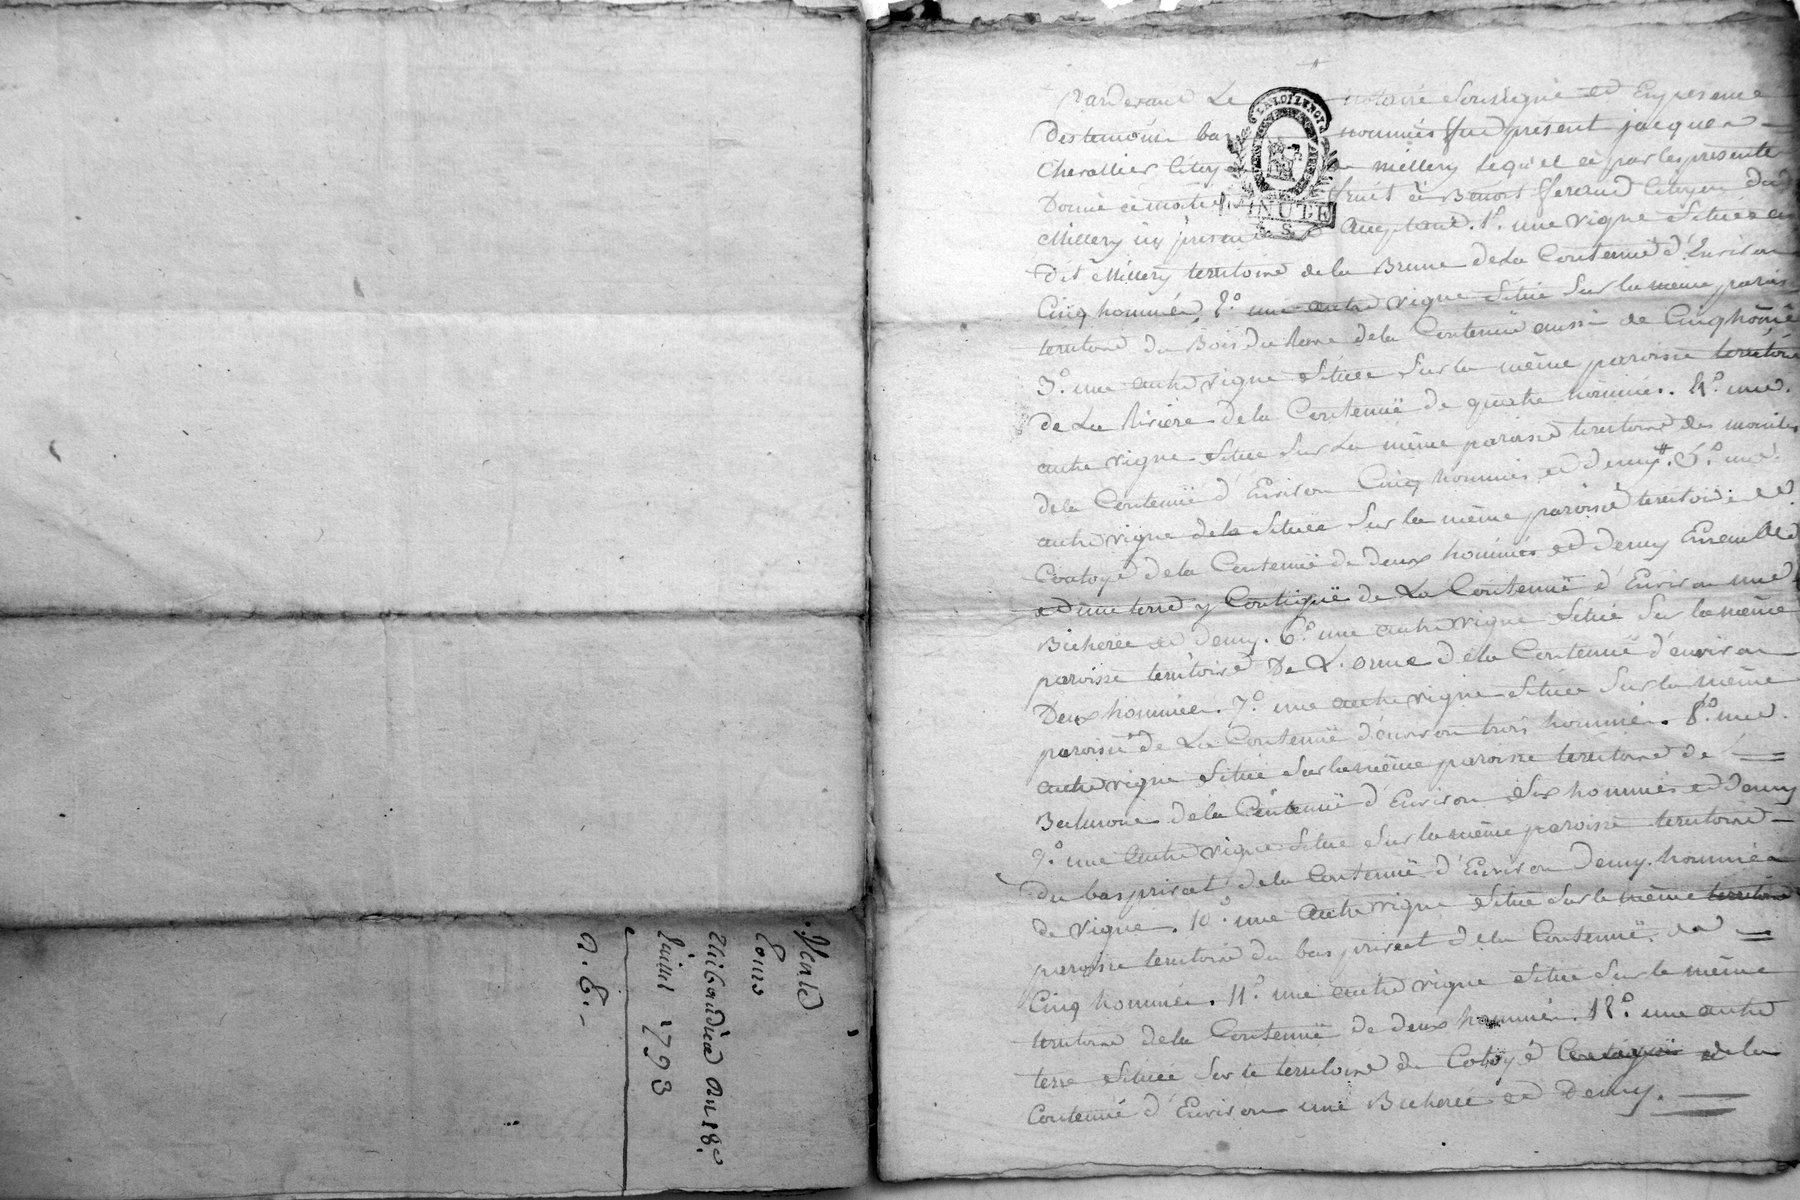 .Vente
Cour
Thibaudier du 18e
Juillet 1793
n. 6.
Pardevant Le notaire Soussigné et En présence
des temoins bas nommés fut présent jacques
Chevallier Citoy de millery lequel a par les présente
Donné a moitié fruit à Benoit fferaud Citoyen dud
Millery icy présent acceptant. 1o. une vigne Située au
dit Millery territoire de la Brune de la Contenuë d'Environ
Cinq hommée, 2o. une autre vigne Située Sur la même parois
territoire du Bois du de la Contenuë aussi de Cinq homé
3o. une autre vigne Située Sur la même paroisse territoire
de La Riviere de la Contenuë de quatre hommée. 4o. une
autre vigne Située Sur La même paroisse territoire des
de la Contenuë d'Environ Cinq hommées et demy. 5o. une
autre vigne de la Située Sur la même paroisse territoire
Cotoyé de la Contenuë de deux hommées et demy Ensemble
et d'une terre y Contiguë de La Contenuë d'Environ une
Bicherée et demy. 6o. une autre vigne Située Sur la même
paroisse territoire De L'orme de la Contenuë d'environ
Deux hommée. 7o. une autre vigne Située Sur la même
paroisse de La Contenuë d'environ trois hommée. 8o. une
autre vigne Située Sur la même paroisse territoire de
de la Contenuë d'Environ Six hommées et Demy
9o. une autre vigne Située Sur la même paroisse territoire
du bas privat de la Contenuë d'Environ Demy hommée
de vigne. 10o. une autre vigne Située Sur le même territoire
paroisse territoire du bas privat de la Contenuë de
Cinq hommée. 11o. une autre vigne Située Sur le même
territoire de la Contenuë de deux hommée. 12o. une autre
terre Située Sur le territoire du Cotoyé Contiguë de la
Contenuë d'Environ une Bicherée et Demy.
LA LOI LE ROI
MINUTE
S